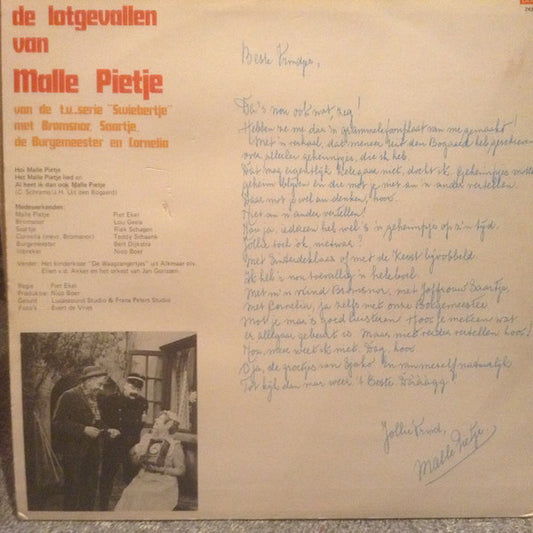 de lotgevallen
van
Malle Pietje
van de t.v..serie "Swiebertje"
met Bromsnor, Saartje,
de Burgemeester en Cornelia
Hoi Malle Pietje
Het Malle Pietje lied en
Al heet ik dan ook Malle Pietje
(C. Schrama/J.H. Uit den Bogaard)
Medewerkenden:
Malle Pietje Piet Ekel
Bromsnor Lou Geels
Saartje Riek Schagen
Cornelia (mevr. Bromsnor) Teddy Schaank
Burgemeester Bert Dijkstra
Inbreker Nico Boer
Verder: Het kinderkoor "De Waagzangertjes" uit Alkmaar olv.
Ellen v.d. Akker en het orkest van Jan Gorissen.
Regie Piet Ekel
Produktie Nico Boer
Geluid Luijkssound Studio & Frans Peters Studio
Foto's Evert de Vries
Beste Kindjes,
Da's nou ook wat, zeg!
Hebben ze me daar 'n grammelefoonplaat van me gemaakt!
Met 'n verhaal, dat meneer Uit den Bogaard het geschreven
over allerlei geheimpjes, die ik heb.
Dat mag eigenlijk helegaar niet, docht ik. Geheimpjes motte
geheim blijven en die mot je niet aan 'n ander vertellen.
Daar mot je wel aan denken, hoor.
Niet aan 'n ander vertellen!
Nou ja, iedereen heb wel 's 'n geheimpje op z'n tijd.
Jollie toch ok, metwar?
Met Sinterdeklaas of met de Kerst bijvobbeld.
Ik heb 'r nou toevallig 'n heleboel.
Met m'n vrind Bromsnor, met Joffrouw Saartje,
met Cornelia, ja zelfs met onze Borgemeester
Mot je maar 's goed luisteren. Hoor je meteen wat
er allegaar gebeurt is. Maar niet verder vertellen hoor!
Nou, meer weet ik niet. Dag, hoor
O ja, de groetjes van Sjako. En van meself natuurlijk
Tot kijk dan maar weer. 't Beste. Daaagg!
Jollie Vrind,
Malle Pietje.